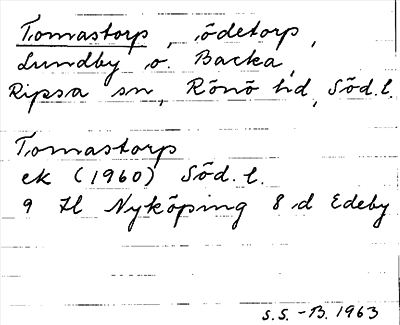 Tomastorp, ödetorp,
Lundby o. Backa,
Ripsa sn, Rönö hd, Söd.l.
Tomastorp
ek (1960) Söd.l.
9 H Nyköping 8 d Edeby
S.S.-B. 1963